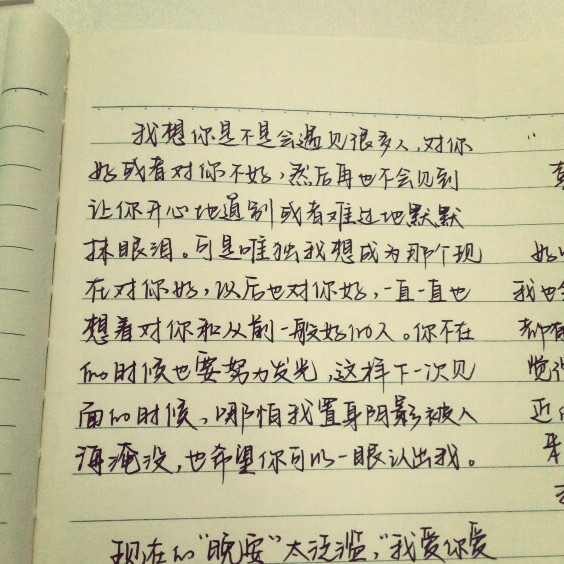 我想你是不是会遇见很多人,对你
好或者对你不好,然后再也不会见到
让你开心地道别或者难过地默默
抹眼泪。可是唯独我想成为那个现
在对你好,以后也对你好,一直一直也
想着对你和从前一般好的人。你不在
的时候也要努力发光,这样下一次见
面的时候,哪怕我置身阴影被人
海淹没,也希望你可以一眼认出我。
现在的“晚安”太泛滥,“我爱你爱
好
我也会
却有
觉得
近的